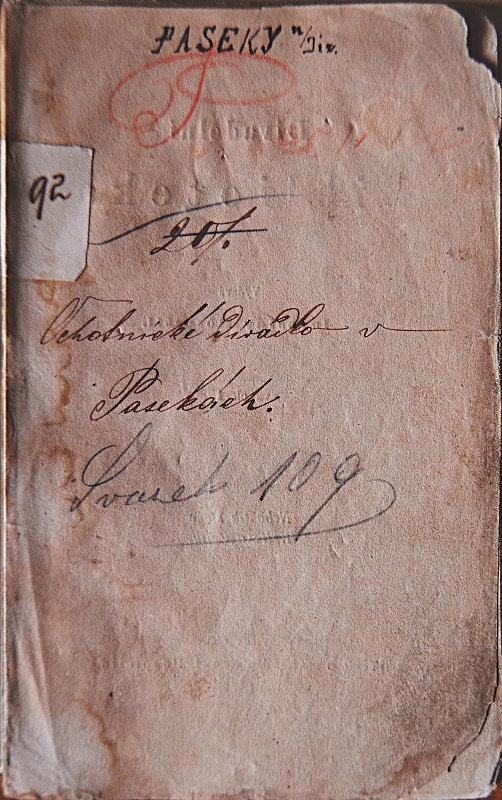 PASEKY n/Jiz.
92
201.
Ochotnické divadlo v
Pasekách.
Svazek 109